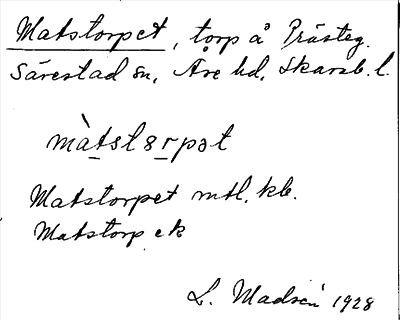 Matstorpet, torp å Prästeg.
Särestad sn, Åse hd, Skarab. l.
màtstɞrpət
Matstorpet mtl. kb.
Matstorp ek
L. Madsén 1928